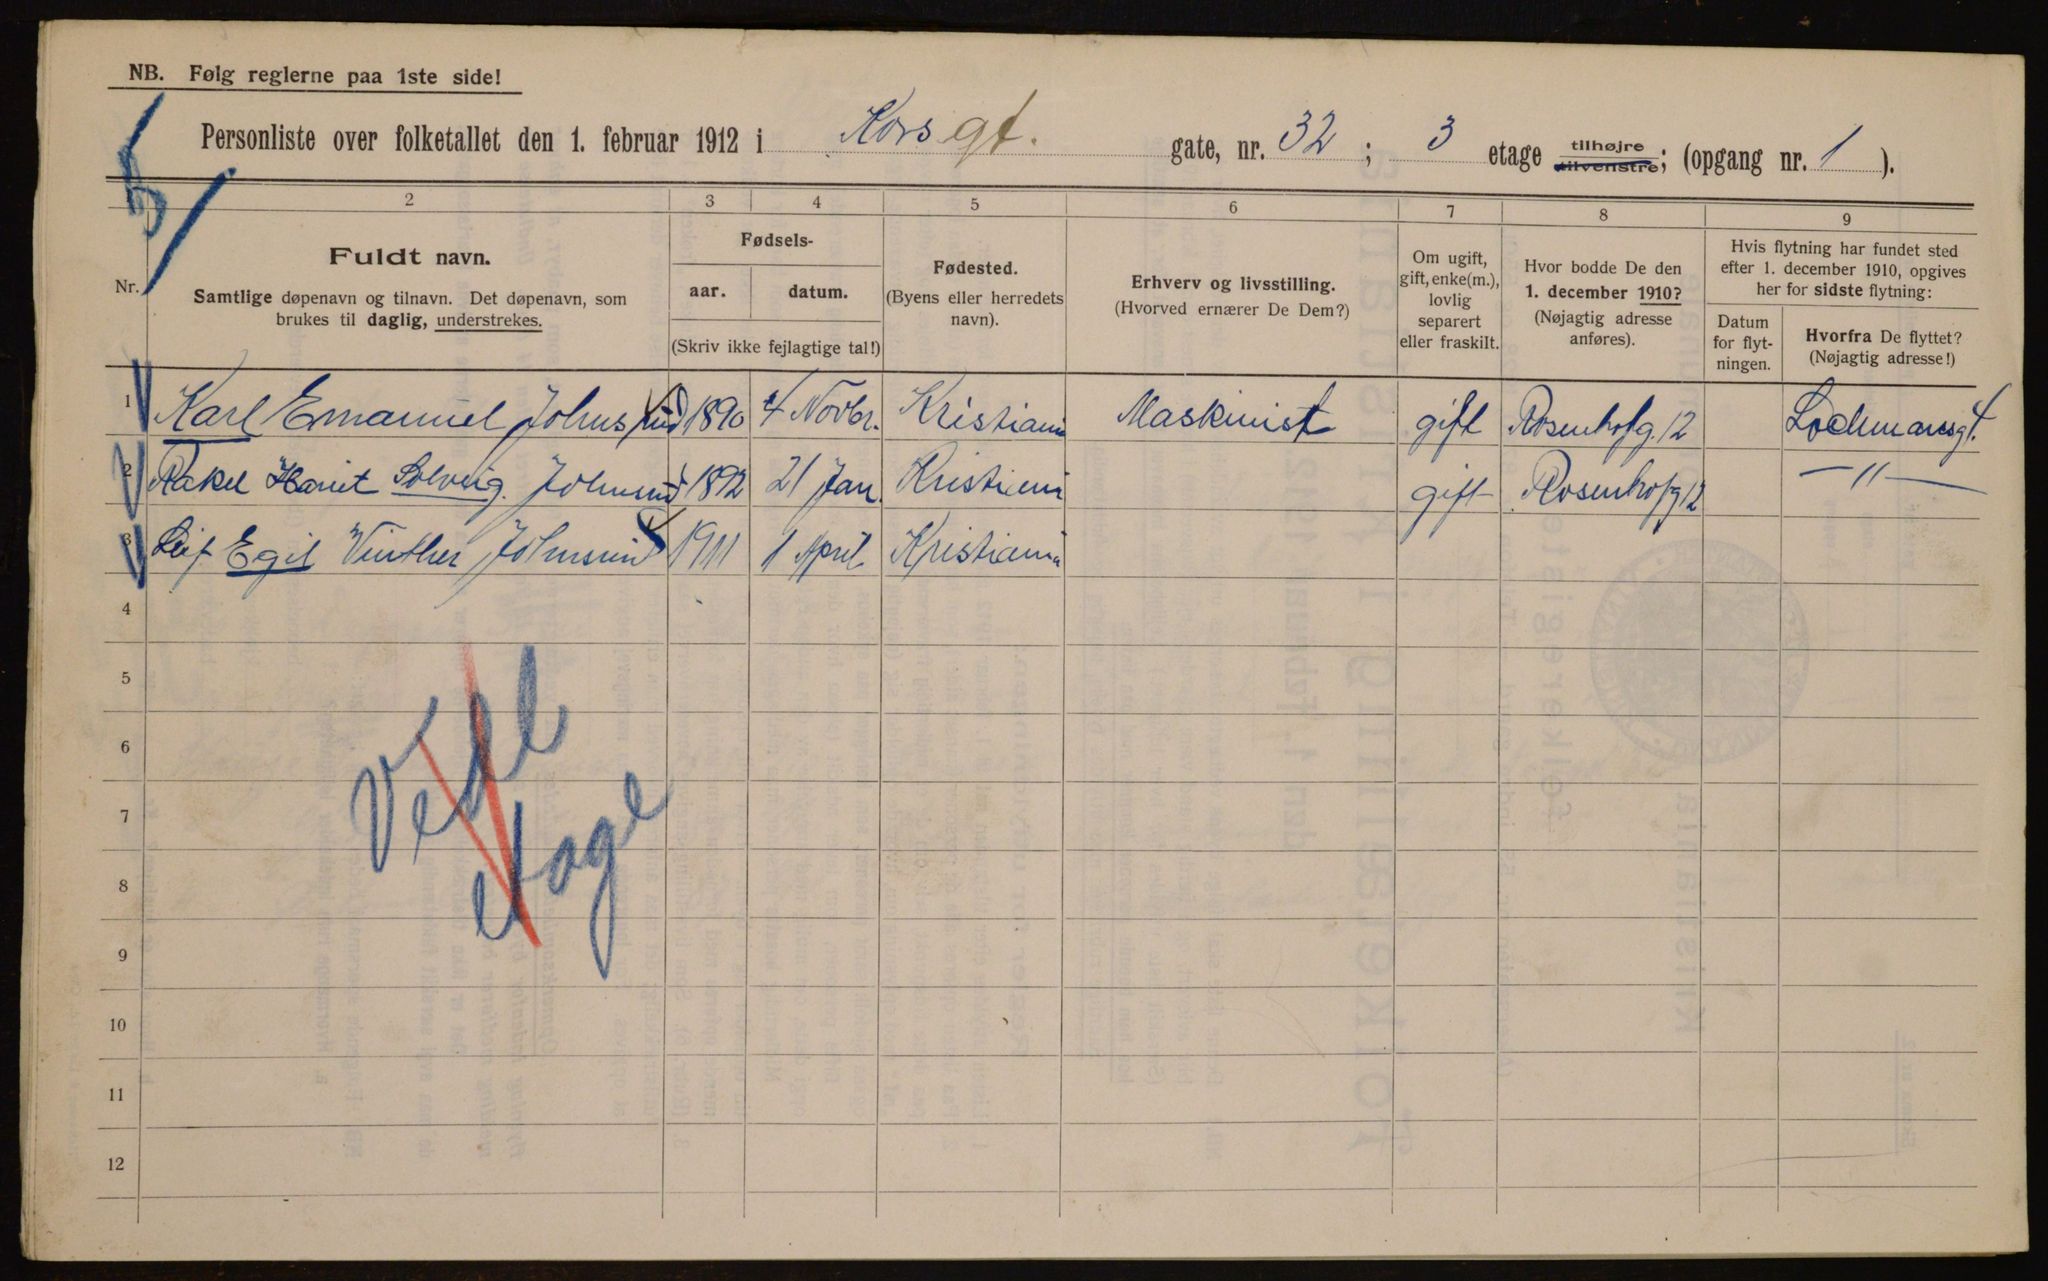 NB. Følg reglerne paa 1ste side!
Personliste over folketallet den 1. februar 1912 i Korsgt. gate, nr. 32 ; 3 etage tilhøjre tilvenstre; (opgang nr. 1 ).
2 3 4 5 6 7 8 9
Nr.
Fuldt navn.
Samtlige døpenavn og tilnavn. Det døpenavn, som
brukes til daglig, understrekes.
Fødsels-
aar. datum.
(Skriv ikke fejlagtige tal!)
Fødested.
(Byens eller herredets
navn).
Erhverv og livsstilling.
(Hvorved ernærer De Dem?)
Om ugift,
gift, enke(m.),
lovlig
separert
eller fraskilt.
Hvor bodde De den
1. december 1910?
(Nøjagtig adresse
anføres).
Hvis flytning har fundet sted
efter 1. december 1910, opgives
her for sidste flytning:
Datum
for flyt-
ningen.
Hvorfra De flyttet?
(Nøjagtig adresse!)
1 Karl Emanuel 1890 4 Novbr. Kristiania Maskinist gift Rosenhofg. 12 Lochmansgt.
2 Rakel Solveig 1892 21 Jan. Kristiania gift Rosenhofg 12 — " —
3 Leif Egil Winther 1911 1 April Kristiania
4
5
6
7
8
9
10
11
12
etage